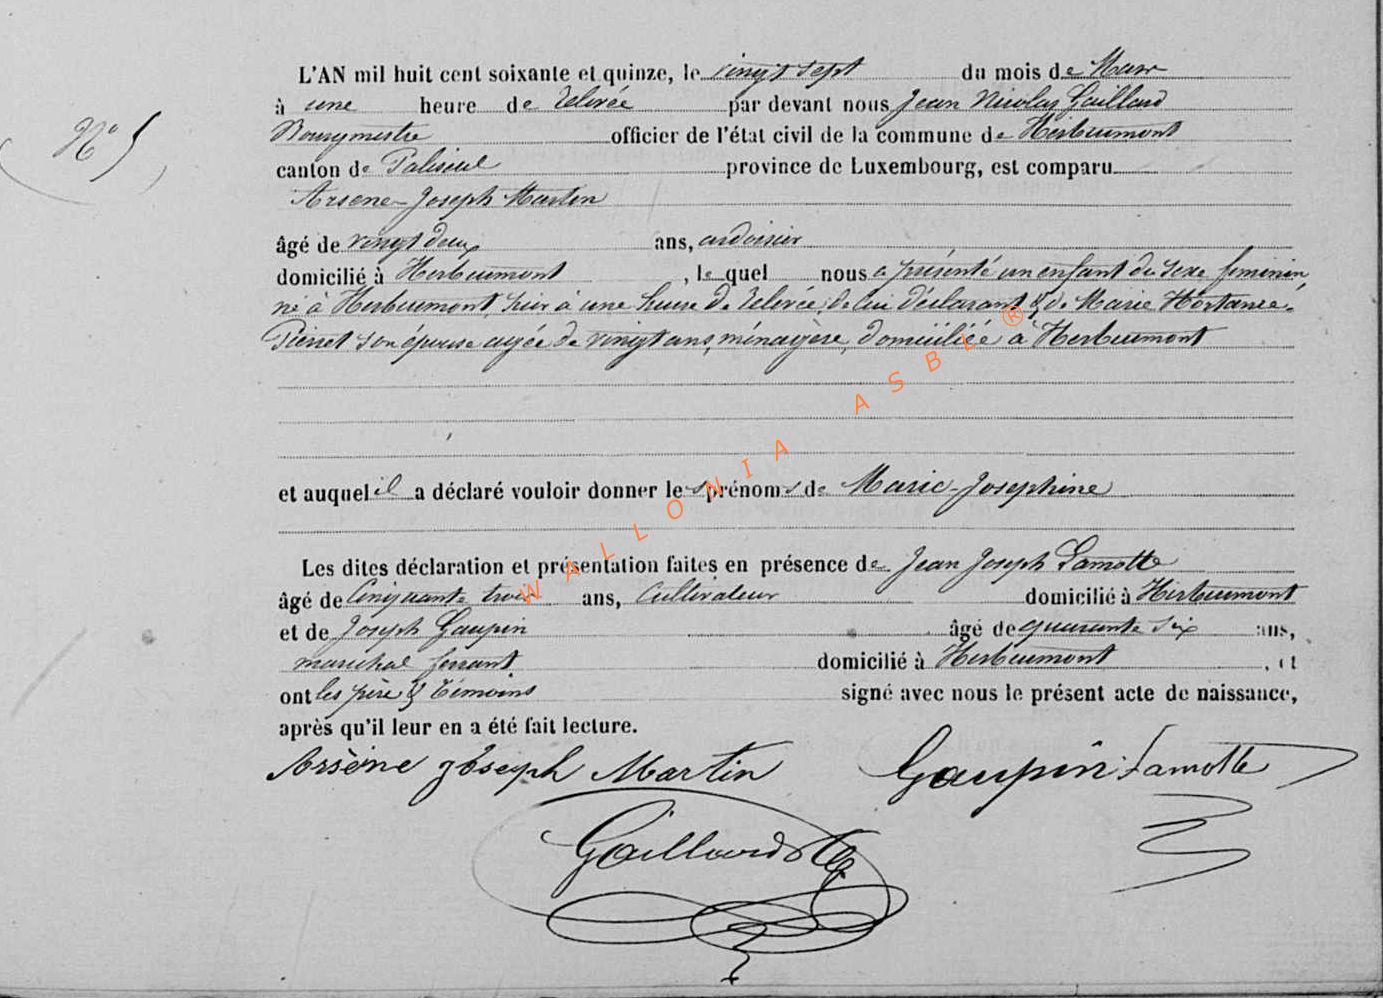 L'AN mil huit cent soixante et quinze, le vingt sept du mois de Mars
à une heure de relevée par devant nous Jean Nicolas Gaillard
Bourgmestre officier de l'état civil de la commune de Herbeumont
N° 5
canton de Paliseul province de Luxembourg, est comparu
Arsene-Joseph Martin
âgé de vingt deux ans, ardoisier
domicilié à Herbeumont, le quel nous a présenté un enfant du sexe feminin,
né à Herbeumont hier à une heure de relevée, de lui déclarant & de Marie Hortance
Pierret son épouse agée de vingt ans, ménagère, domiciliée à Herbeumont
et auquel il a déclaré vouloir donner les prénoms de Marie-Josephine
Les dites déclaration et présentation faites en présence de Jean Joseph Lamotte
âgé de Cinquante trois ans, Cultivateur domicilié à Herbeumont
et de Joseph Gaupin âgé de quarante six ans,
marechal ferrant domicilié à Herbeumont, et
ont les père & témoins signé avec nous le présent acte de naissance,
après qu'il leur en a été fait lecture.
Arsène Joseph Martin Gaupin Lamotte
Gaillard
WALLONIA ASBL ®